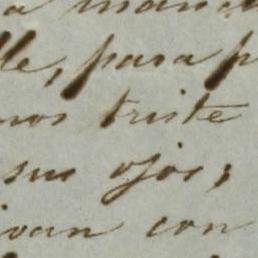 a
lle, para p
nos triste
sus ojos;
ivan con